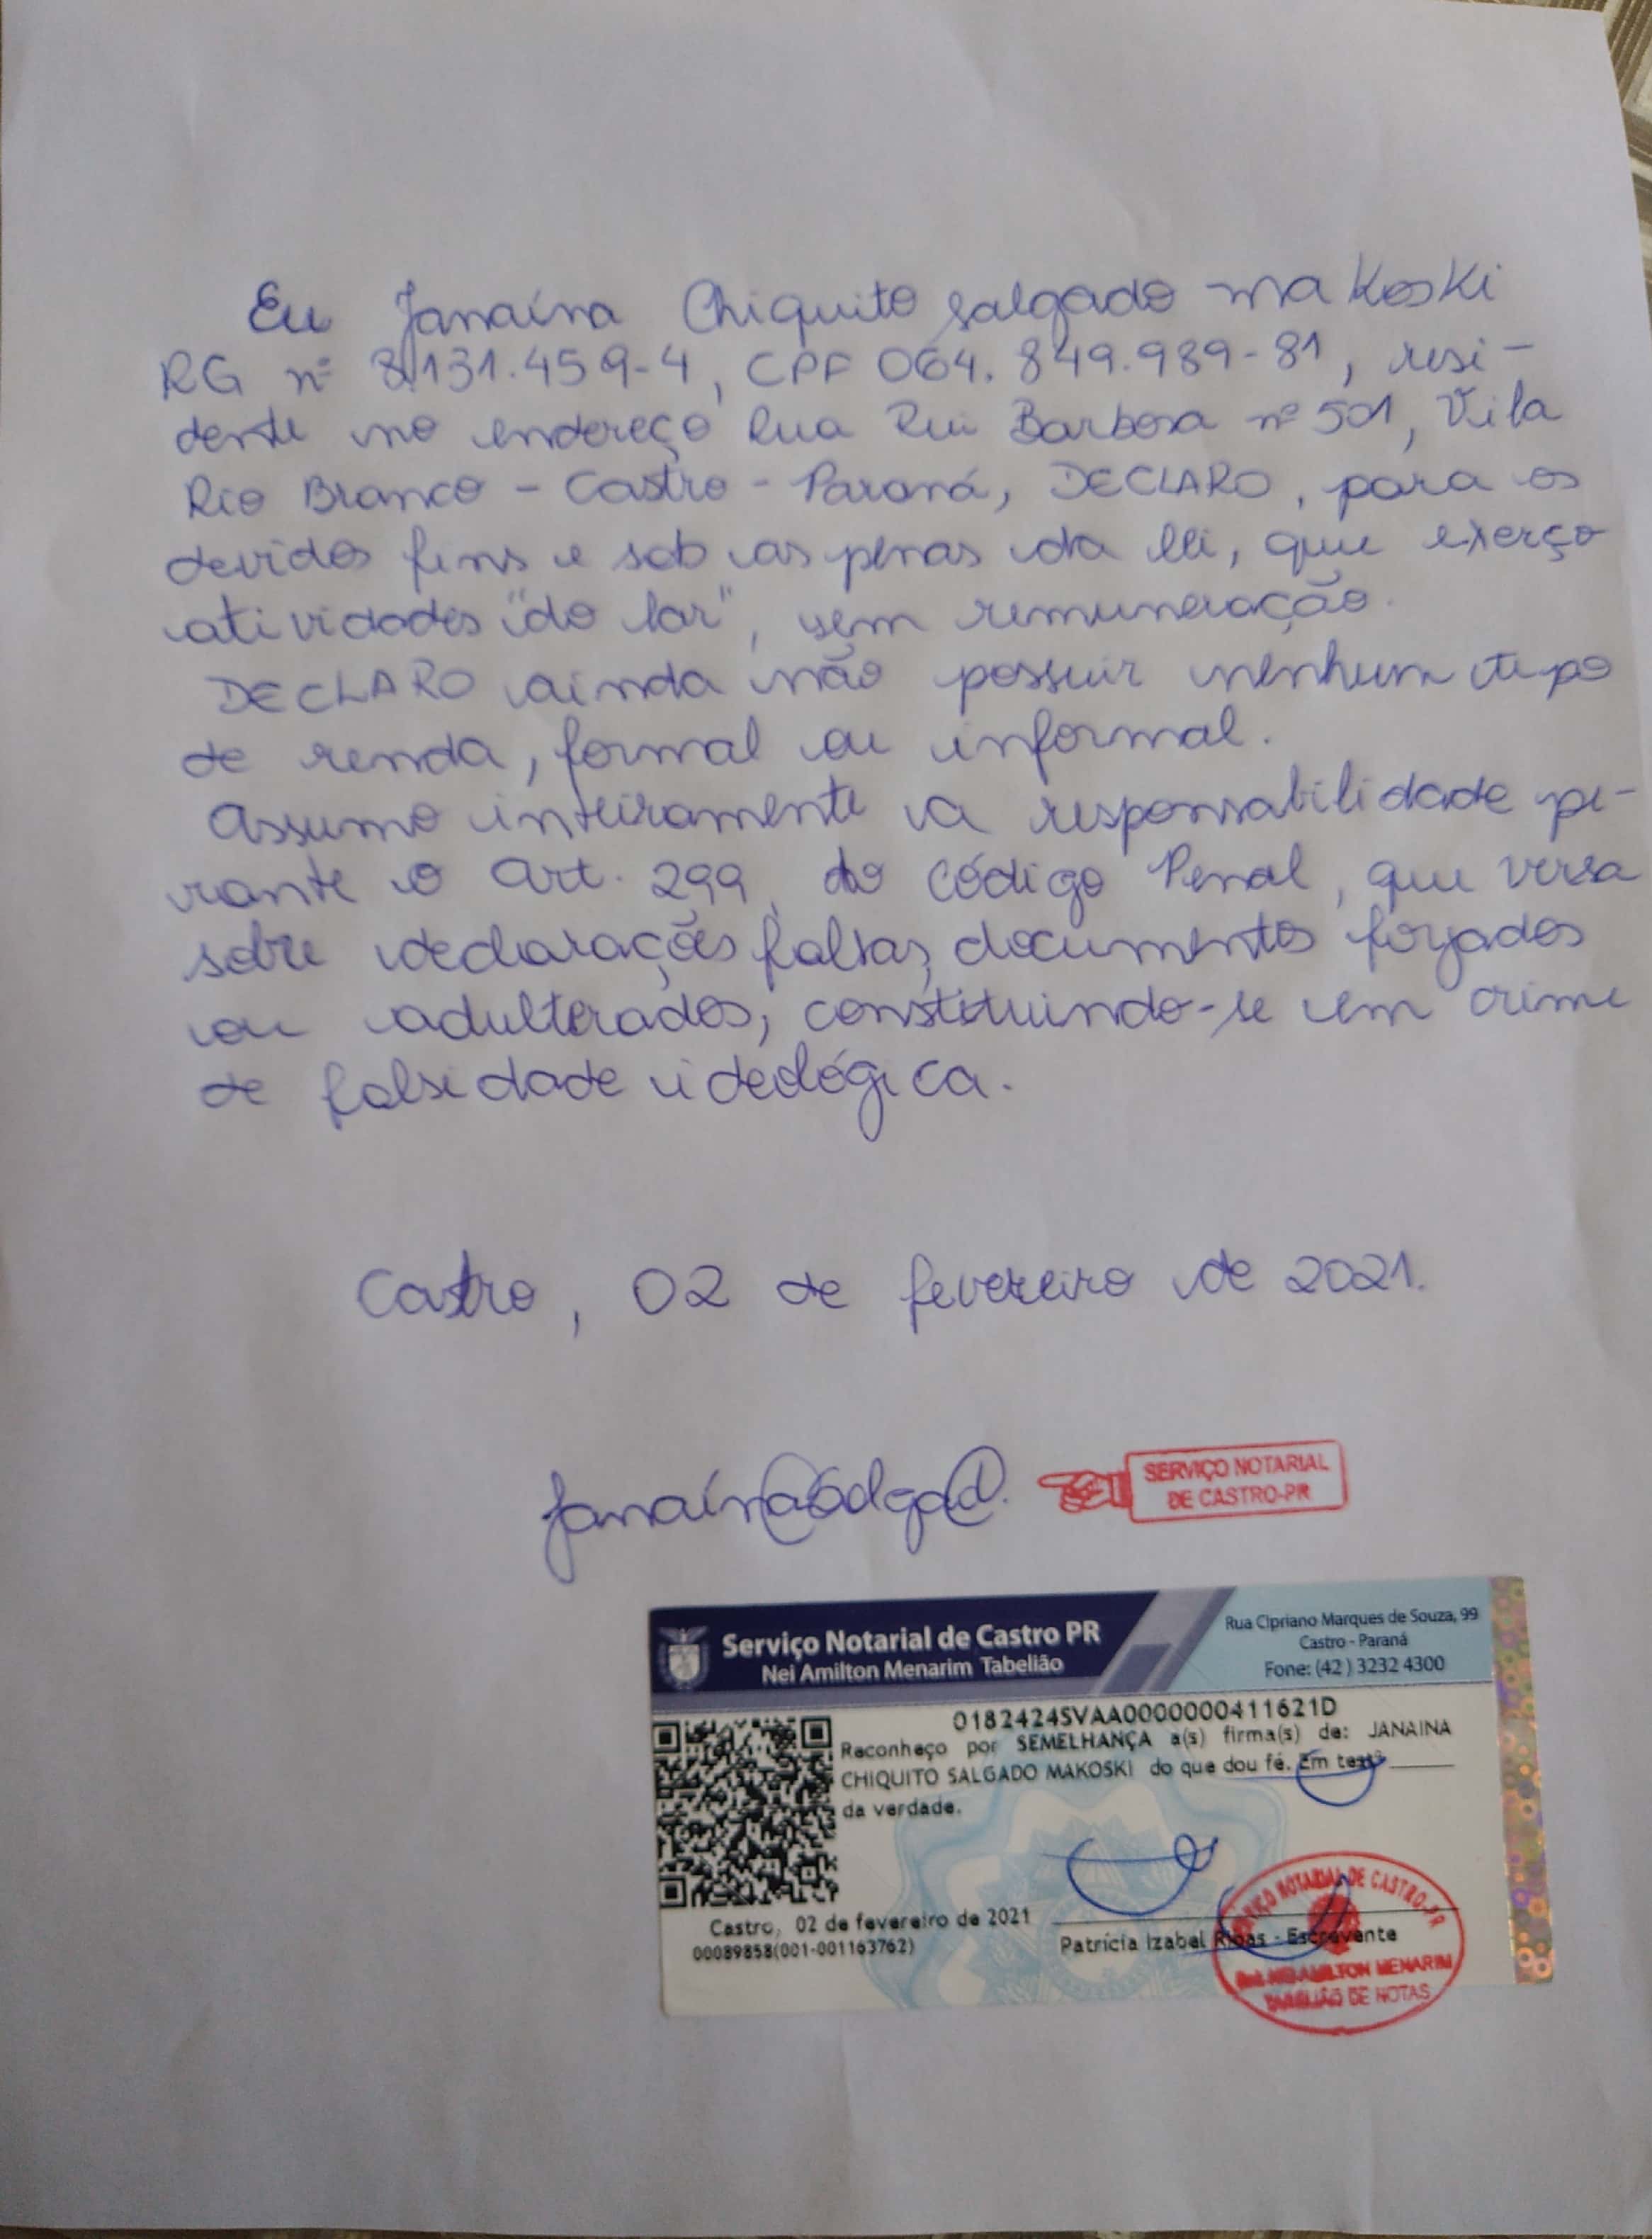 Eu Janaína Chiquito Salgado Makoski
RG nº 8.131.459-4, CPF 064.849.989-81, resi-
dente no endereço Rua Rui Barbosa nº 501, Vila
Rio Branco - Castro - Paraná, DECLARO, para os
devidos fins e sob as penas da lei, que exerço
atividades "do lar", sem remuneração.
DECLARO ainda não possuir nenhum tipo
de renda, formal ou informal.
Assumo inteiramente a responsabilidade pe-
rante o Art. 299, do Código Penal, que versa
sobre declarações falsas, documentos forjados
ou adulterados, constituindo-se em crime
de falsidade ideológica.
Castro, 02 de fevereiro de 2021.
Janaína Salgado.
SERVIÇO NOTARIAL
DE CASTRO-PR
Serviço Notarial de Castro PR
Nei Amilton Menarim Tabelião
Rua Cipriano Marques de Souza, 99
Castro - Paraná
Fone: (42) 3232 4300
0182424SVAA0000000411621D
Reconheço por SEMELHANÇA a(s) firma(s) de: JANAINA
CHIQUITO SALGADO MAKOSKI do que dou fé. Em testº
da verdade.
Castro, 02 de fevereiro de 2021
00089858(001-001163762)
Patrícia Izabel Ribas - Escrevente
SERVIÇO NOTARIAL DE CASTRO-PR
NEI AMILTON MENARIM
TABELIÃO DE NOTAS